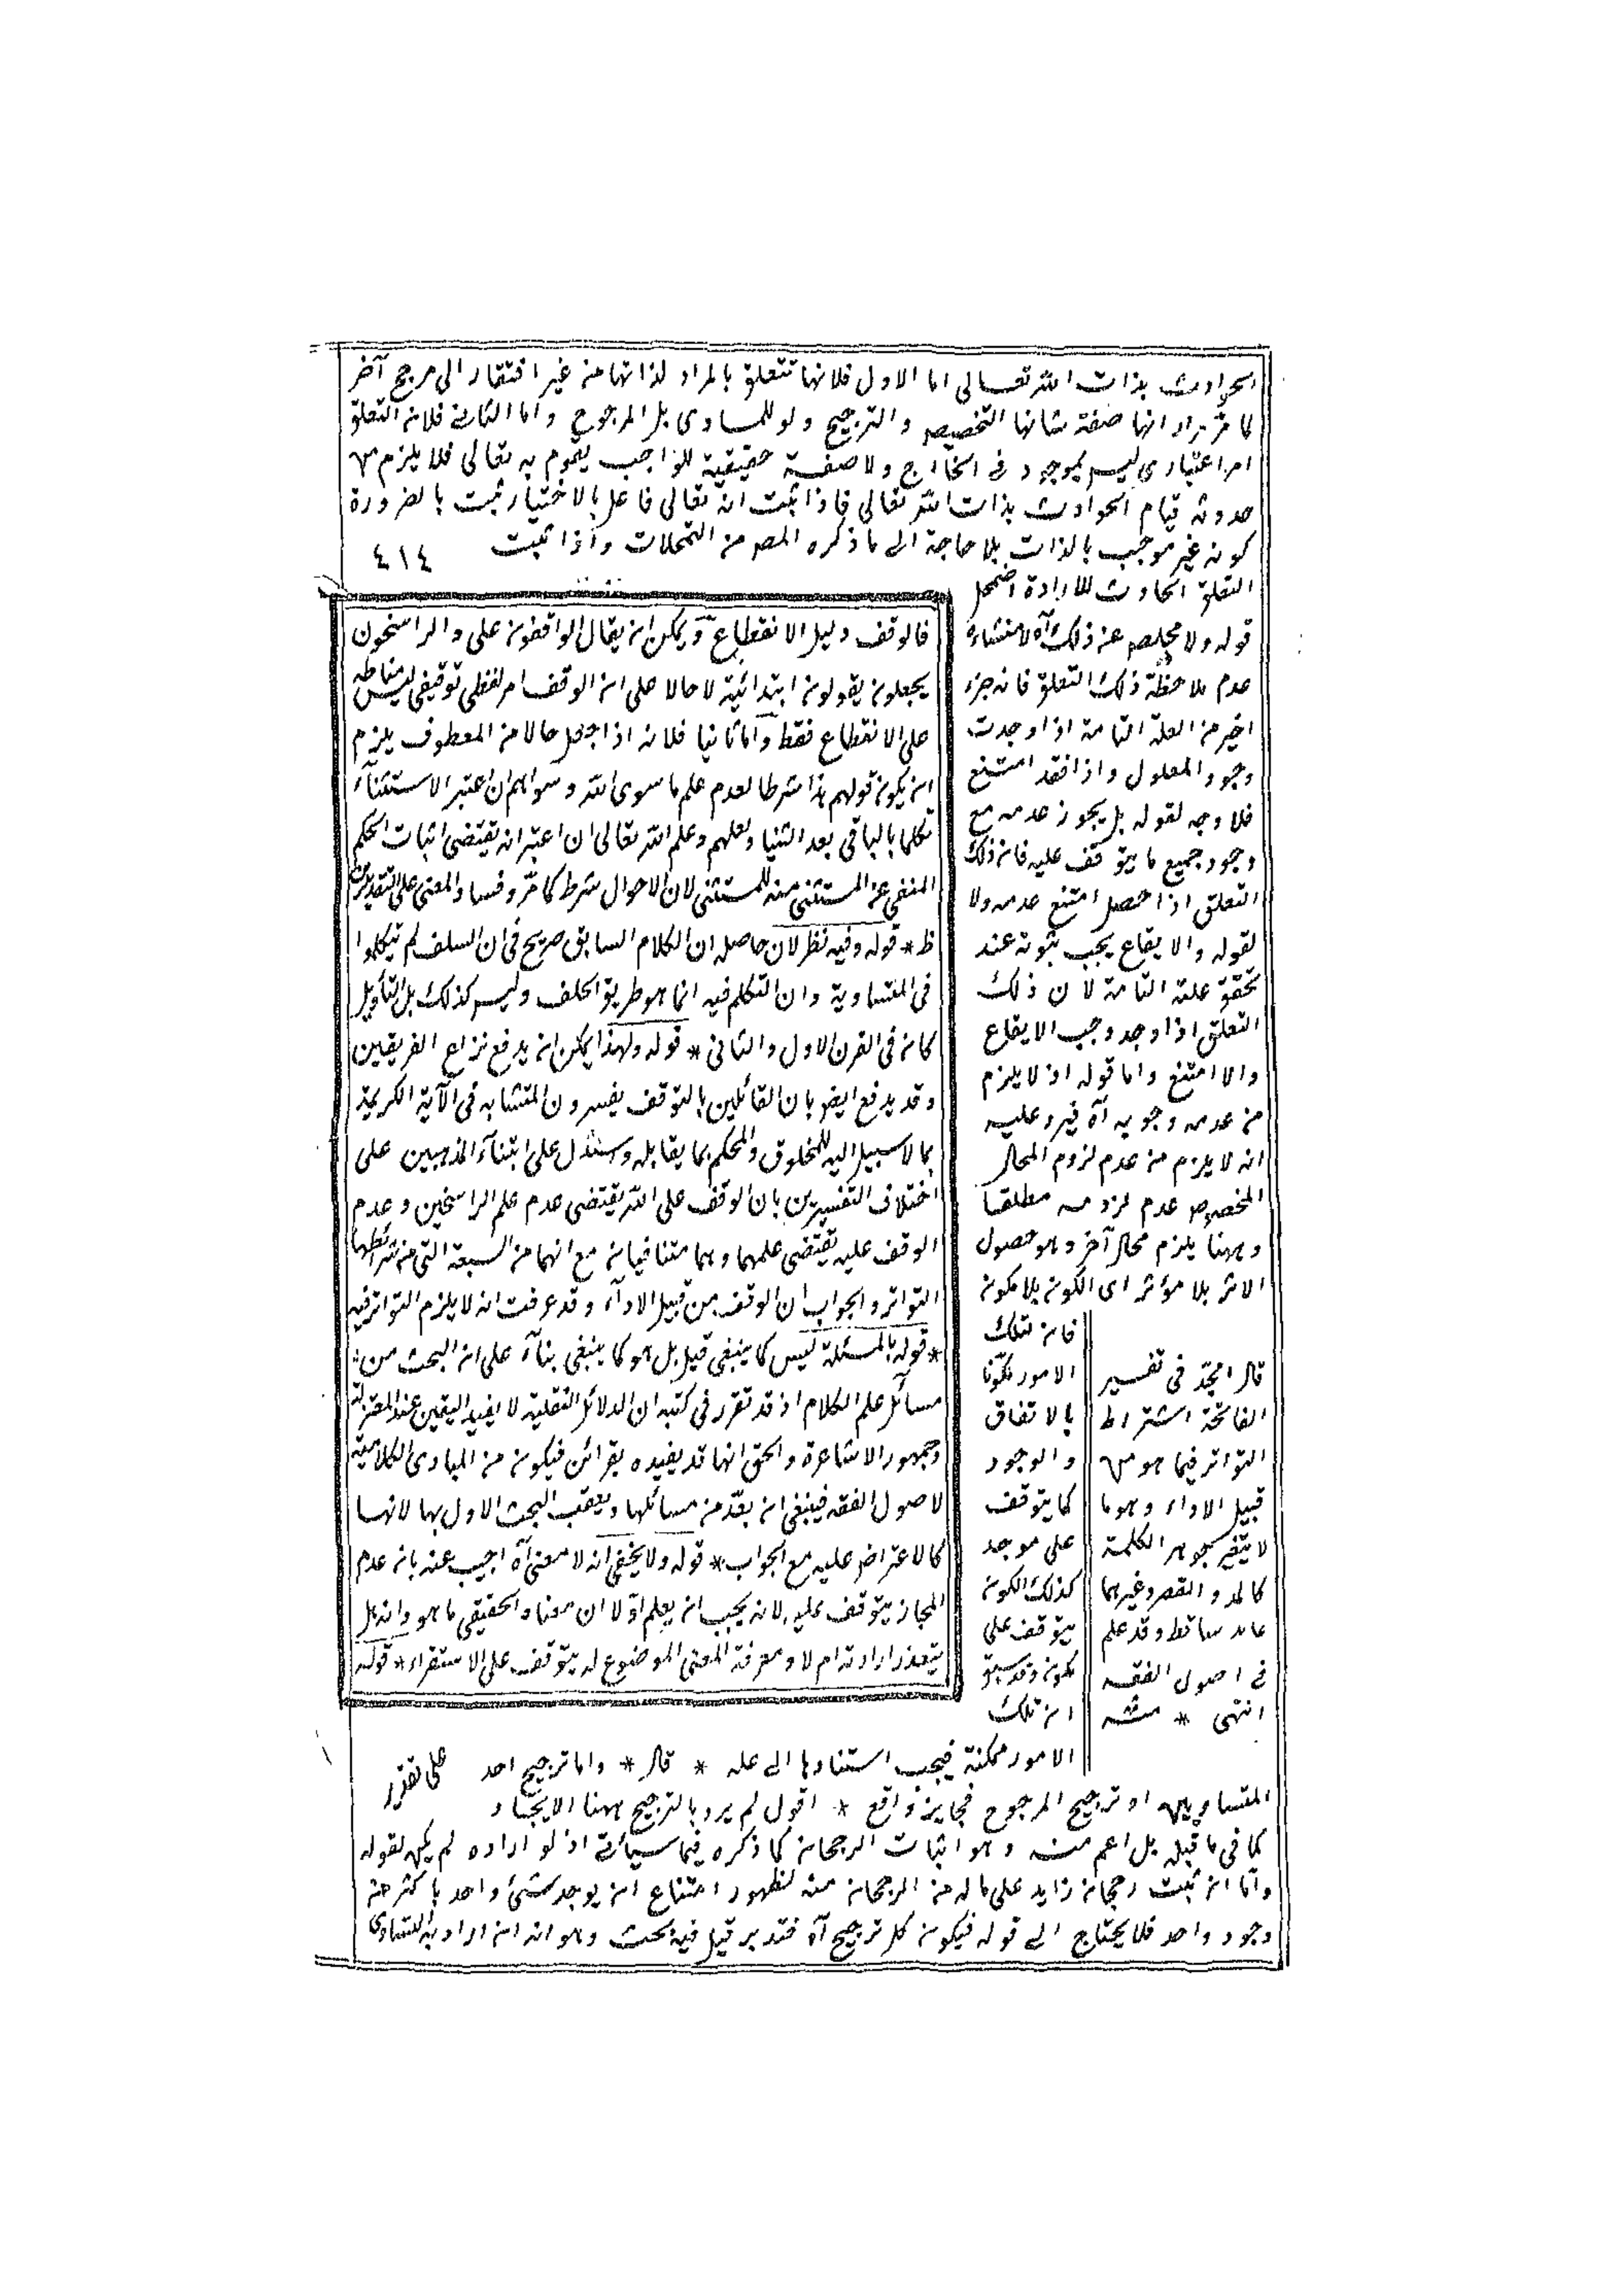 الحوادث بذات الله تعالى اما الاول فلانها تتعلق بالمراد لذاتها من غير افتقار الى مرجح آخر
لما مر مرارا انها صفة شانها التخصيص والترجيح ولو للمساوى بل المرجوح واما الثانى فلان التعلق
امر اعتبارى ليس بموجود فى الخارج ولا صفة حقيقية للواجب يقوم به تعالى فلا يلزم من
حدوثه قيام الحوادث بذات الله تعالى فاذا ثبت انه تعالى فاعل بالاختيار ثبت بالضرورة
كونه غير موجب بالذات بلا حاجة الى ما ذكره المص من التمحلات واذا ثبت
٤١٤
التعلق الحادث للارادة اضمحل
قوله ولا مخلص عن ذلك آه لا منشاءه
عدم ملاحظة ذلك التعلق فانه جزء
اخير من العلة التامة اذا وجدت
وجود المعلول واذا فقد امتنع
فلا وجه لقوله بل يجوز عدمه مع
وجود جميع ما يتوقف عليه فان ذلك
التعلق اذا حصل امتنع عدمه ولا
لقوله والايقاع يجب ثبوته عند
تحقق علته التامة لان ذلك
التعلق اذا وجد وجب الايقاع
والا امتنع واما قوله اذ لا يلزم
من عدمه وجوبه آه فيرد عليه
انه لا يلزم من عدم لزوم المحال
المخصوص عدم لزومه مطلقا
وههنا يلزم محال آخر وهو حصول
الاثر بلا مؤثر اى الكون بلا مكون
فان لتلك
الامور تكونا
بالاتفاق
والوجود
كما يتوقف
على موجد
كذلك الكون
يتوقف على
مكون وقد سبق
ان تلك
الامور ممكنة فيجب استنادها الى علة * قال * واما ترجيح احد
المتساويين او ترجيح المرجوح فجايز واقع * اقول لم يرد بالترجيح ههنا الايجاد
كما فى ما قبله بل اعم منه وهو اثبات الرجحان كما ذكره فيما سيأتى اذ لو اراده لم يكن لقوله
واما ان ثبت رجحان زايد على ما له من الرجحان منه لظهور امتناع ان يوجد شئ واحد باكثر من
وجود واحد فلا يحتاج الى قوله فيكون كل ترجيح آه فتدبر قيل فيه بحث وهو انه ان اراد بالمتساوى
فالوقف دليل الانقطاع ويمكن ان يقال الواقفون على والراسخون
يجعلون يقولون ابتدائية لا حالا على ان الوقف امر لفظى توقيفى ليس مناطه
على الانقطاع فقط واما ثانيا فلانه اذا جعل حالا من المعطوف يلزم
ان يكون قولهم هذا شرطا لعدم علم ما سوى الله وسواهم ان اعتبر الاستثناء
تكلما بالباقى بعد الثنيا ولعلهم وعلم الله تعالى ان اعتبر انه يقتضى اثبات الحكم
المنفى عن المستثنى منه للمستثنى لان الاحوال شرط كما مر وفساد المعنى على التقديرين
ظ * قوله وفيه نظر لان حاصله ان الكلام السابق صريح فى ان السلف لم يتكلموا
فى المتشاوبة وان التكلم فيه انما هو طريق الخلف وليس كذلك بل التأويل
كان فى القرن الاول والثانى * قوله ولهذا يمكن ان يدفع نزاع الفريقين
وقد يدفع ايضو بان القائلين بالتوقف يفسرون المتشابه فى الآية الكريمة
بما لا سبيل اليه للمخلوق والمحكم بما يقابله وستدل على ابتناء المذهبين على
اختلاف التفسيرين بان الوقف على الله يقتضى عدم علم الراسخين وعدم
الوقف عليه يقتضى علمهما وهما متنافيان مع انهما من السبعة التى من شرائطها
التواتر والجواب ان الوقف من قبيل الاداء وقد عرفت انه لا يلزم التواتر فيه
* قوله بالمسئلة ليس كما ينبغى قيل بل هو كما ينبغى بناء على ان البحث من
مسائل علم الكلام اذ قد تقرر فى كتبه ان الدلائل النقلية لا يفيد اليقين عند المعتزلة
وجمهور الاشاعرة والحق انها قد يفيده بقرائن فيكون من المبادى الكلامية
لاصول الفقه فينبغى ان يعد من مسائلها ويعقب البحث الاول بها لانها
كالاعتراض عليه مع الجواب * قوله ولا يخفى انه لا معنى آه اجيب عنه بان عدم
المجاز يتوقف عليه لانه يجب ان يعلم اولا ان معناه الحقيقى ما هو وانه هل
يتعذر ارادته ام لا ومعرفة المعنى الموضوع له يتوقف على الاستقراء * قوله
على تقدير
قال المجد فى تفسير
الفاتحة اشتراط
التواتر فيما هو من
قبيل الاداء وهو ما
لا يتغير بجوهر الكلمة
كالمد والقصر وغيرهما
ساقط وقد علم
فى اصول الفقه
انتهى * منه